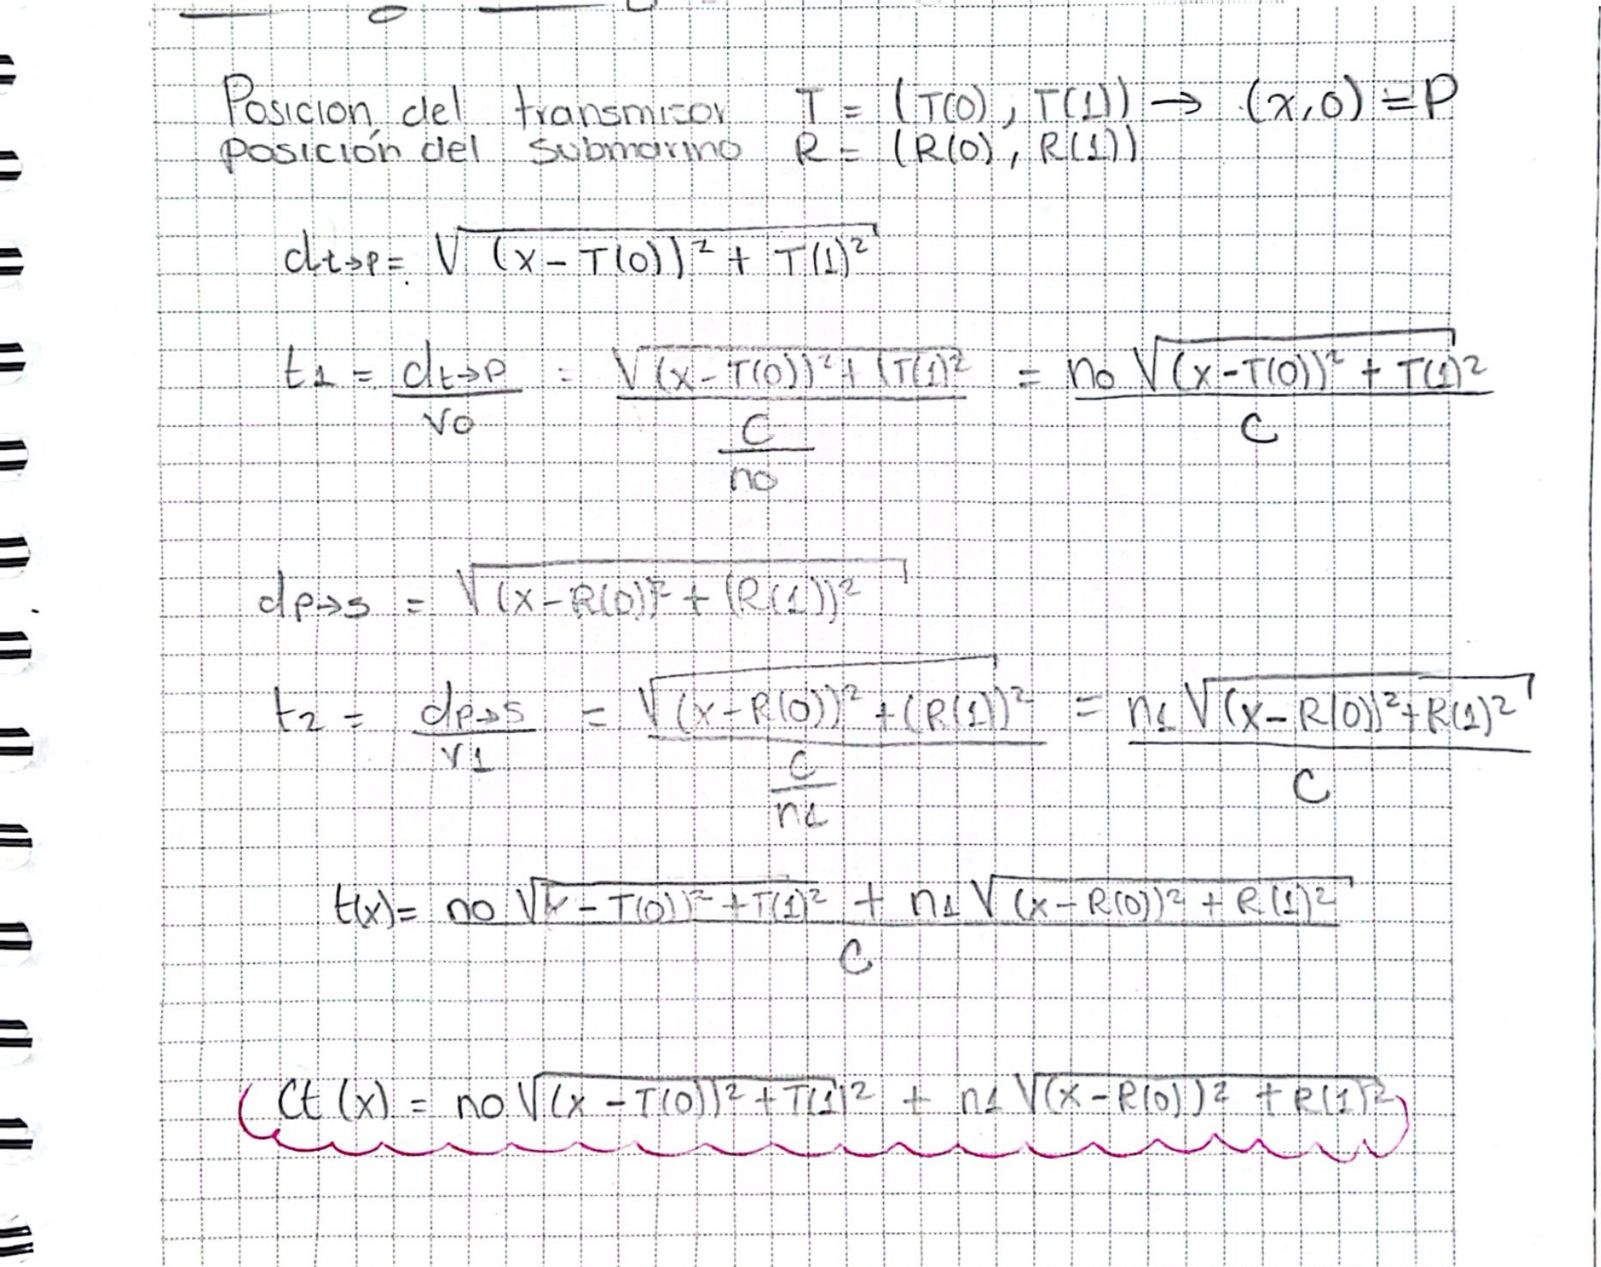 Posición del transmisor T = (T(0), T(1)) → (x,0) = P
posición del submarino R = (R(0), R(1))
dt→p = √((x-T(0))² + T(1)²)
t1 = dt→p / v0 = √((x-T(0))² + (T(1)²) / (C / n0) = n0 √((x-T(0))² + T(1)²) / C
dp→s = √((x-R(0))² + (R(1))²)
t2 = dp→s / v1 = √((x-R(0))² + (R(1))²) / (C / n1) = n1 √((x-R(0))² + R(1)²) / C
t(x) = n0 √((x-T(0))² + T(1)²) + n1 √((x-R(0))² + R(1)²) / C
Ct(x) = n0 √((x-T(0))² + T(1)²) + n1 √((x-R(0))² + R(1)²)